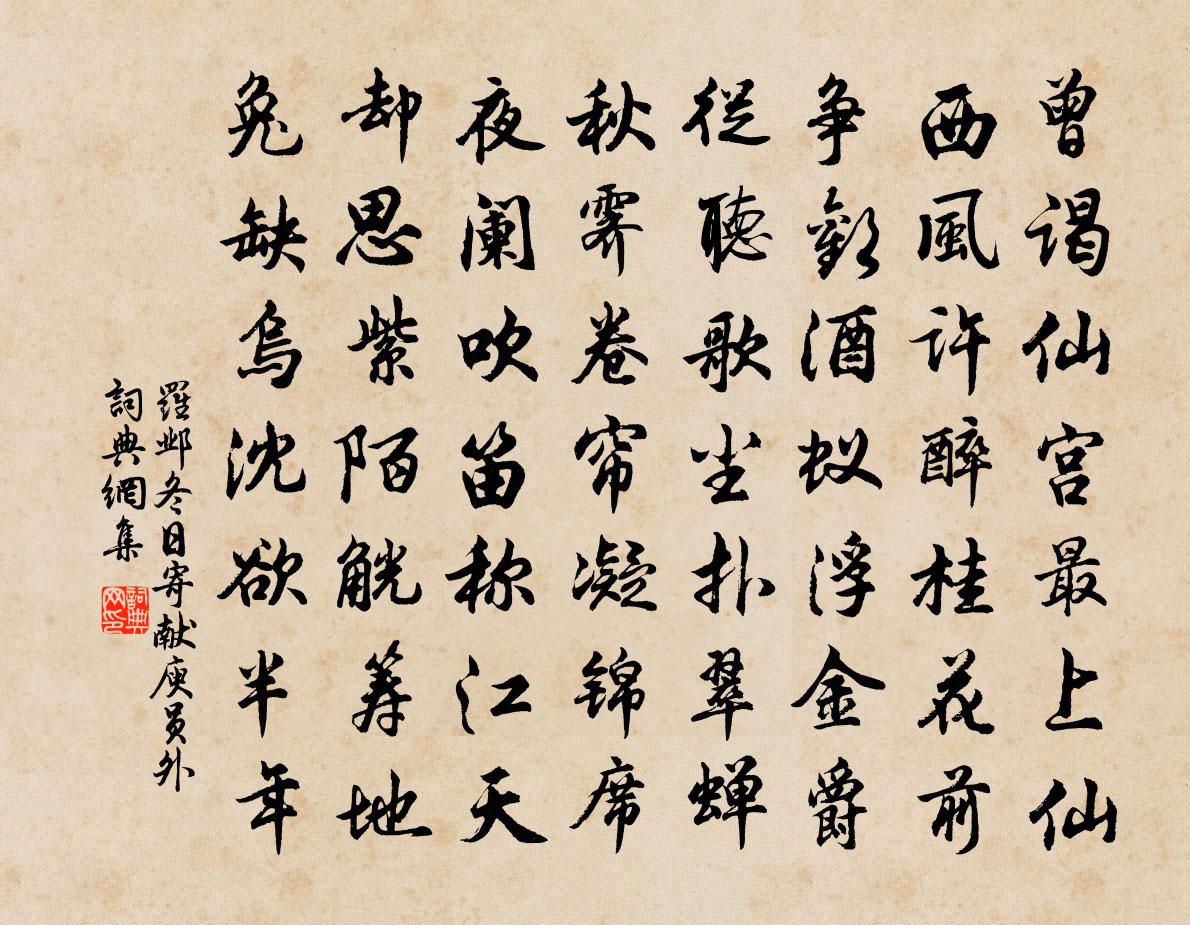 曾谒仙宫最上仙
西風许醉桂花前
争歡酒蚁浮金爵
從聽歌尘扑翠蝉
秋霁卷帘凝锦席
夜阑吹笛称江天
却思紫陌觥筹地
兔缺烏沈欲半年
羅邺冬日寄献庾员外
詞典網集
詞典网印